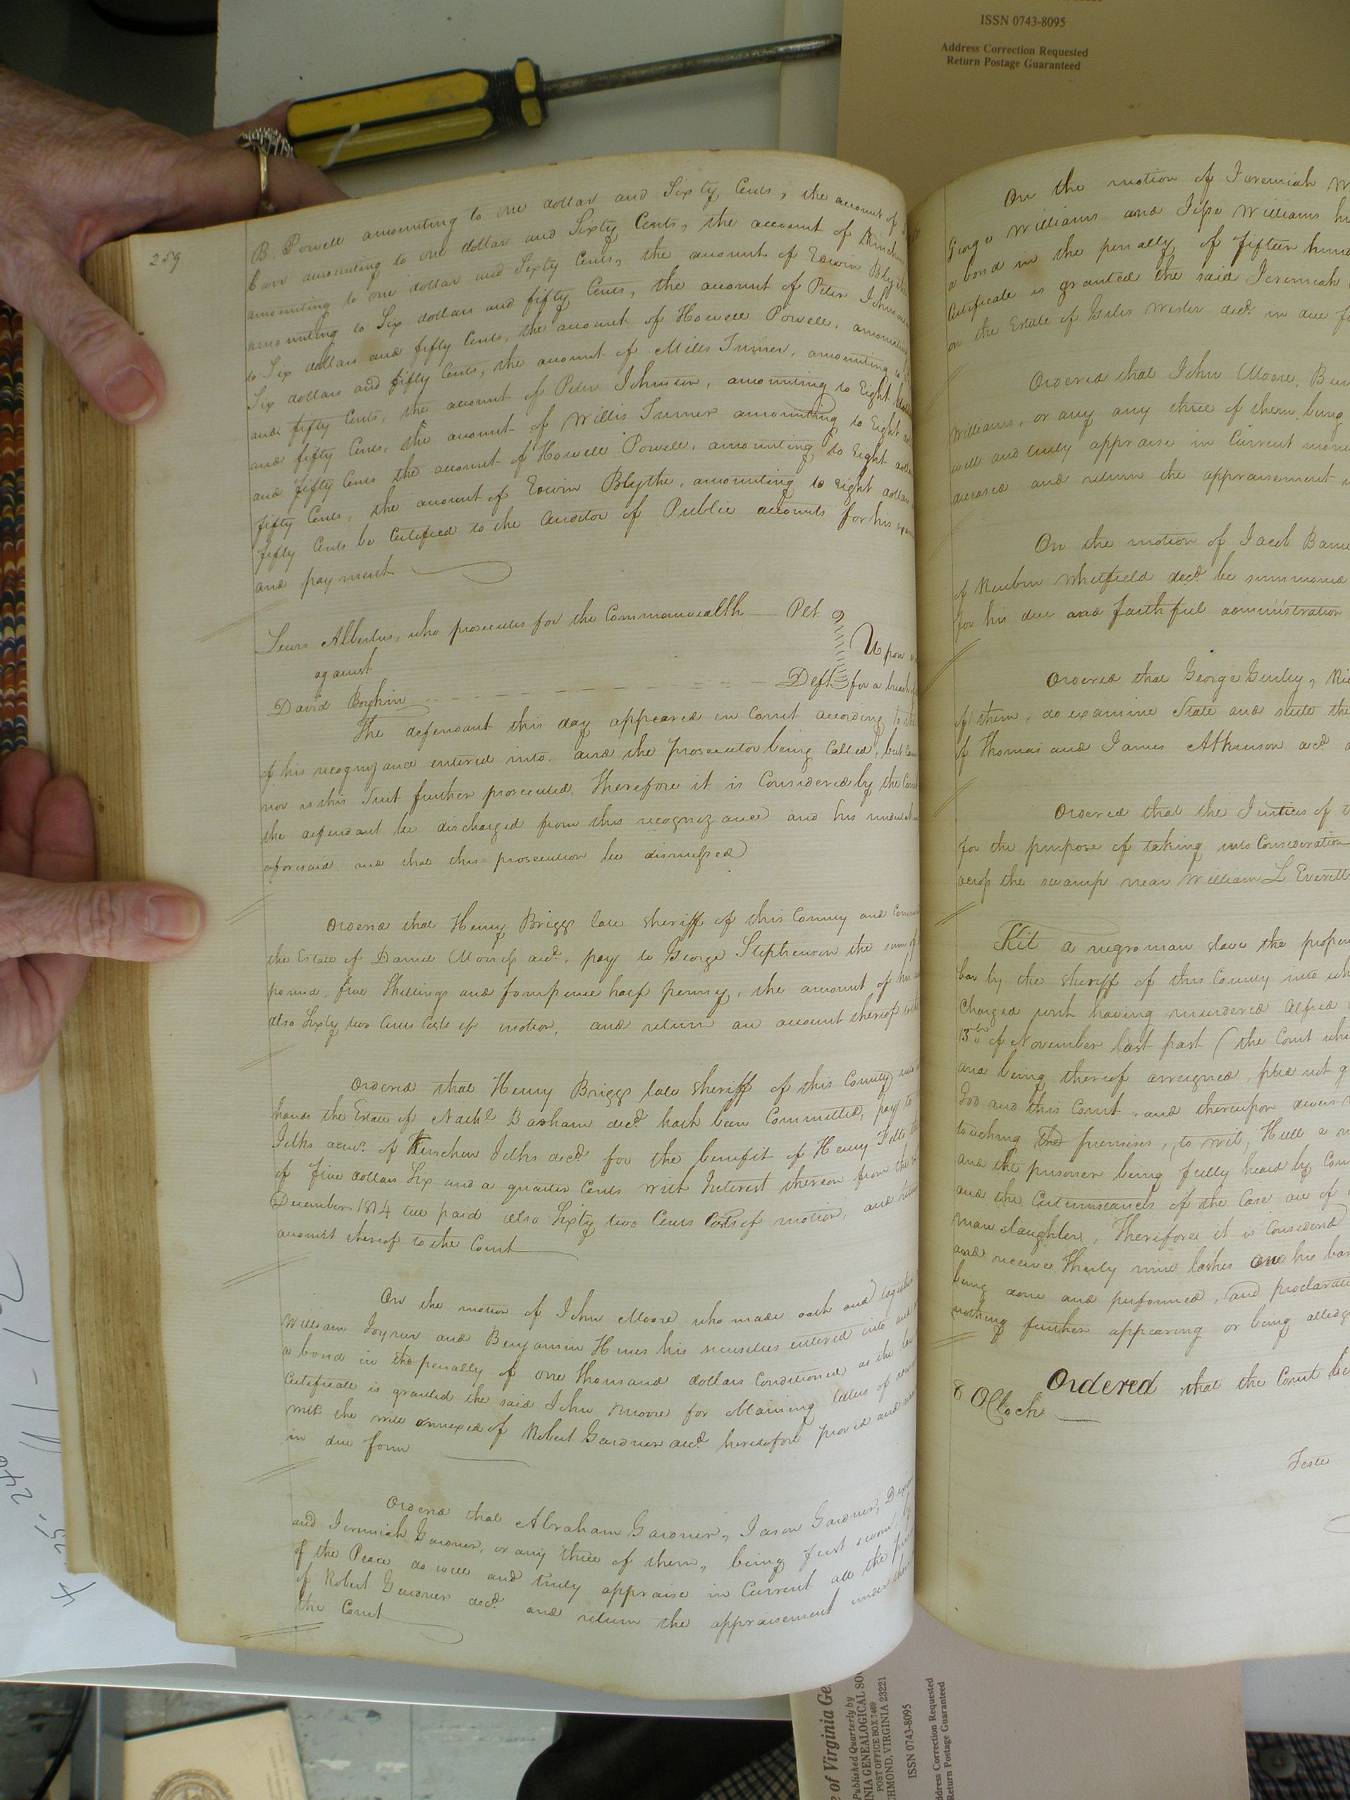 ISSN 0743-8095
Address Correction Requested
Return Postage Guaranteed
259
B. Powell amounting to one dollar and Sixty Cents, the account of
Carr amounting to one dollar and Sixty Cents, the account of
amounting to one dollar and Sixty Cents, the account of Edwin Blythe
amounting to Six dollars and fifty Cents, the account of Peter Johnson
to Six dollars and fifty Cents, the account of Howell Powell, amounting
Six dollars and fifty Cents, the account of Mills Turner, amounting to
and fifty Cents, the account of Peter Johnson, amounting to Eight
and fifty Cents, the account of Willis Turner amounting to Eight
and fifty Cents the account of Howell Powell, amounting to Eight
fifty Cents, the account of Edwin Blythe, amounting to eight dollars
fifty Cents be Certified to the Auditor of Public accounts for his
and payment
Lewis Albertus, who prosecutes for the Commonwealth Plt
against
Upon
David Boykin Deft for a
The defendant this day appeared in Court according to
of his recognizance entered into, and the prosecutor being Called, but
nor is this Suit further prosecuted. Therefore it is Considered by the
the defendant be discharged from this recognizance and his
aforesaid and that this prosecution be dismissed
Ordered that Henry Briggs late sheriff of this County and
the Estate of Daniel decd. pay to George Stephenson the sum of
pound, five Shillings and fourpence half penny, the amount of his
also Sixty two Cents Costs of motion, and return an account thereof
Ordered that Henry Briggs late sheriff of this County
hands the Estate of Nathl. Barham decd. hath been Committed, pay to
admr. of Kinchen decd for the benefit of Henry
of five dollars Six and a quarter Cents with Interest thereon from the
December 1814 till paid also Sixty two Cents Costs of motion, and
account thereof to the Court
On the motion of John Moore who made oath and together
William Joyner and Benjamin Hines his securities entered into
a bond in the penalty of one Thousand dollars Conditioned as the law
Certificate is granted the said John Moore for obtaining letters of
with the will annexed of Robert Gardner decd. heretofore proved and
in due form
Ordered that Abraham Gardner, Jason Gardner,
and Jeremiah Gardner, or any three of them, being first sworn
of the Peace do well and truly appraise in Current all the
of Robert Gardner decd. and return the appraisement under
the Court
On the motion of Jeremiah
George Williams and Jesse Williams his
a bond in the penalty of fifteen
Certificate is granted the said Jeremiah
on the Estate of Giles decd. in due
Ordered that John Moore,
Williams, or any any three of them being
well and truly appraise in Current
deceased and return the appraisement
On the motion of Jacob
of Reuben Whitfield decd. be summoned
for his due and faithful administration
Ordered that George Gurley,
of them, do examine State and settle the
of Thomas and James Atkinson decd
Ordered that the Justices of
for the purpose of taking into Consideration
across the swamp near William L Everett
Kit a negro man slave the
bar by the sheriff of this County into
Charged with having murdered Alfred
13th of November last past (the Court
and being thereof arraigned, plead not
God and this Court, and thereupon
touching the premises, to wit,
and the prisoner being fully heard by
and the Circumstances of the Case are of
man slaughter, Therefore it is Considered
and receive Thirty nine lashes on his
being done and performed, and
nothing further appearing or being
Ordered that the Court be
8 OClock
Teste
of Virginia
Published Quarterly by
GENEALOGICAL
POST OFFICE BOX 7469
VIRGINIA 23221
ISSN 0743-8095
Address Correction Requested
Return Postage Guaranteed